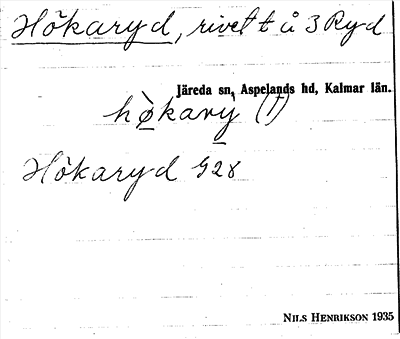 Hökaryd, rivet t å 3 Ryd
Järeda sn, Aspelands hd, Kalmar län.
hø̀kary (1)
Hökaryd G28
NILS HENRIKSON 1935